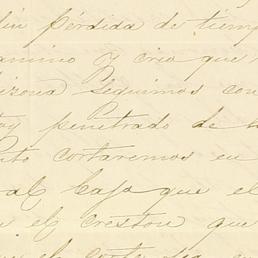 sin pérdida de tiemp
amino y creo que
izona Seguimos con
penetrado de l
cortaremos en
al baja que el
el creston que
el corte